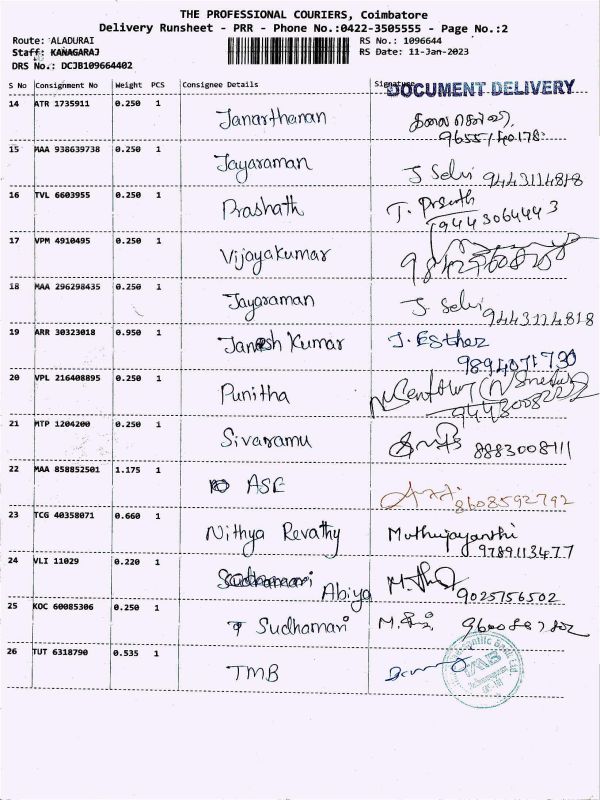 THE PROFESSIONAL COURIERS, Coimbatore
Delivery Runsheet - PRR - Phone No.:0422-3505555 - Page No.:2
Route: ALADURAI
RS No.: 1096644
Staff: KANAGARAJ
RS Date: 11-Jan-2023
DRS No.: DCJB109664402
S No Consignment No Weight PCS Consignee Details Signature
DOCUMENT DELIVERY
14 ATR 1735911 0.250 1 Janarthanan
15 MAA 938639738 0.250 1 Jayaraman J Selvi 9443114818
16 TVL 6603955 0.250 1 Prashath T. Prsenth
9443064443
17 VPM 4910495 0.250 1 Vijayakumar
18 MAA 296298435 0.250 1 Jayaraman J. Selvi 9443114818
19 ARR 30323018 0.950 1 Janesh Kumar J. Esther
9894071730
20 VPL 216408895 0.250 1 Punitha
21 MTP 1204200 0.250 1 Sivaramu 8883008111
22 MAA 858852501 1.175 1 ASE
8608592792
23 TCG 40358071 0.660 1 Nithya Revathy Muthujayanthi
9789113477
24 VLI 11029 0.220 1 Abiya
9025756502
25 KOC 60085306 0.250 1 Sudhamari
26 TUT 6318790 0.535 1 TMB